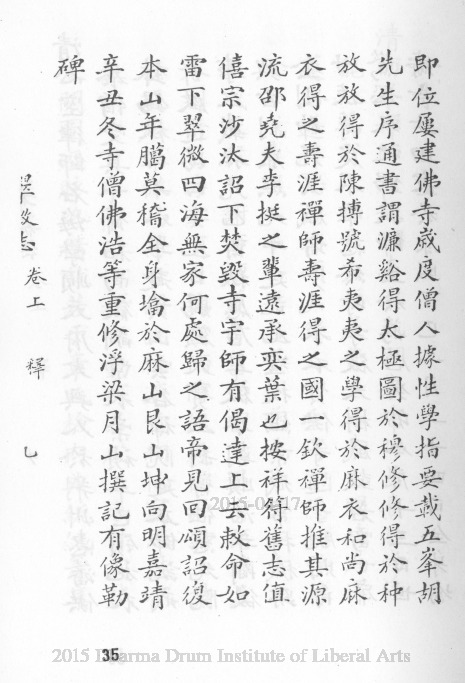 即位屢建佛寺歲度僧人據性學指要載五峯胡
先生序通書謂濂谿得太極圖於穆修修得於种
放放得於陳摶號希夷夷之學得於麻衣和尚麻
衣得之壽涯禪師壽涯得之國一欽禪師推其源
流邵堯夫李挺之輩遠承奕葉也按祥符舊志值
僖宗沙汰詔下焚毀寺宇師有偈達上云敕命如
雷下翠微四海無家何處歸之語帝見回頌詔復
本山年臈莫稽全身塔於麻山艮山坤向明嘉靖
辛丑冬寺僧佛浩等重修浮梁月山撰記有像勒
碑
卷上
釋
七
35
2015 Dharma Drum Institute of Liberal Arts